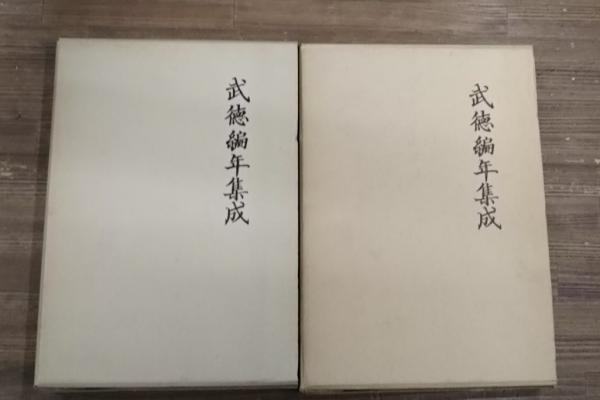 武徳編年集成
武徳編年集成